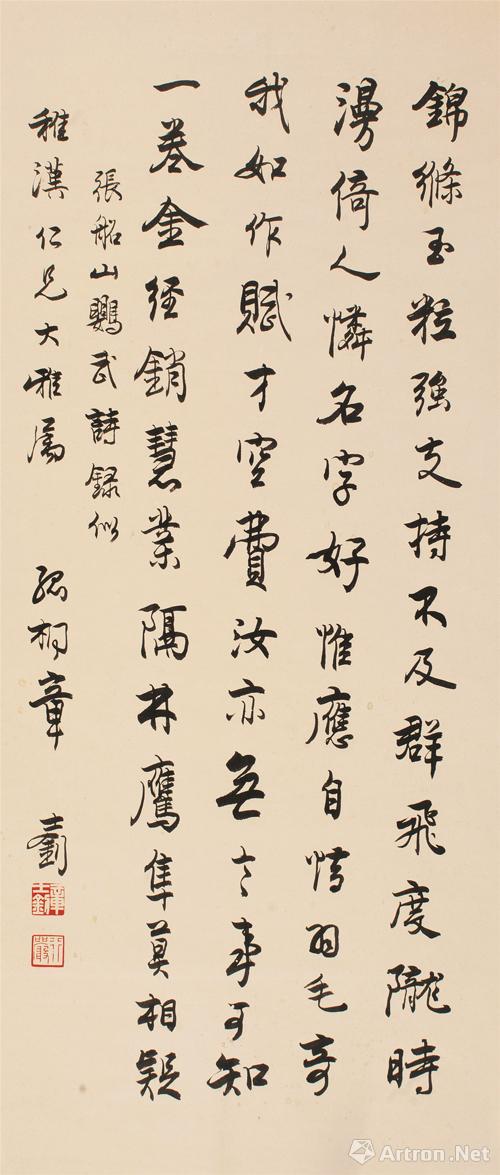 錦縧玉粒強支持不及群飛度隴時
漫倚人憐名字好惟應自惜羽毛奇
我如作賦才空費汝亦無言事可知
一卷金經銷慧業隔林鷹隼莫相疑
張船山鸚武詩錄似
稚漢仁兄大雅屬 孤桐章士釗
章士釗
行嚴
Artron.Net